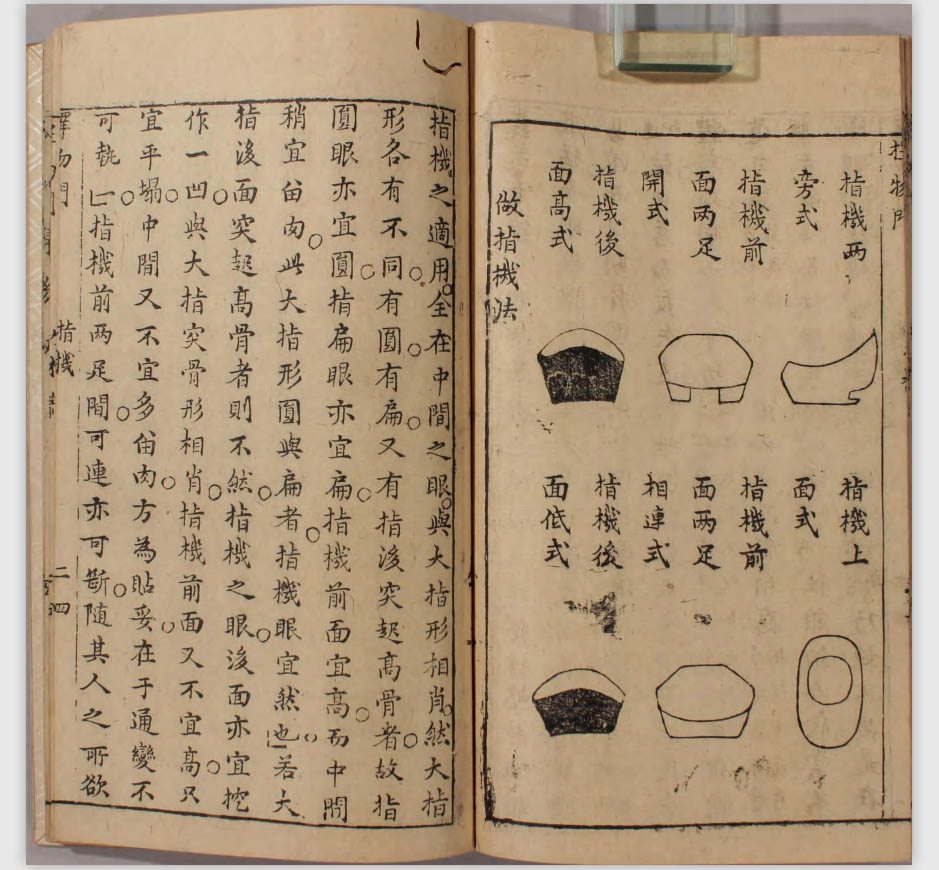 指機两
旁式
指機前
面两足
開式
指機後
面高式
指機上
面式
指機前
面两足
相連式
指機後
面低式
做指機法
指機之適用全在中間之眼與大指形相肖然大指
形各有不同有圓有扁又有指後突起高骨者故指
圓眼亦宜圓指扁眼亦宜扁指機前面宜高而中間
稍宜畱肉此大指形圓與扁者指機眼宜然也若大
指後面突起高骨者則不然指機之眼後面亦宜挖
作一凹與大指突骨形相肖指機前面又不宜高只
宜平塌中間又不宜多畱肉方為貼妥在于通變不
可執一指機前两足間可連亦可斷隨其人之所欲
擇物門
指機
二四